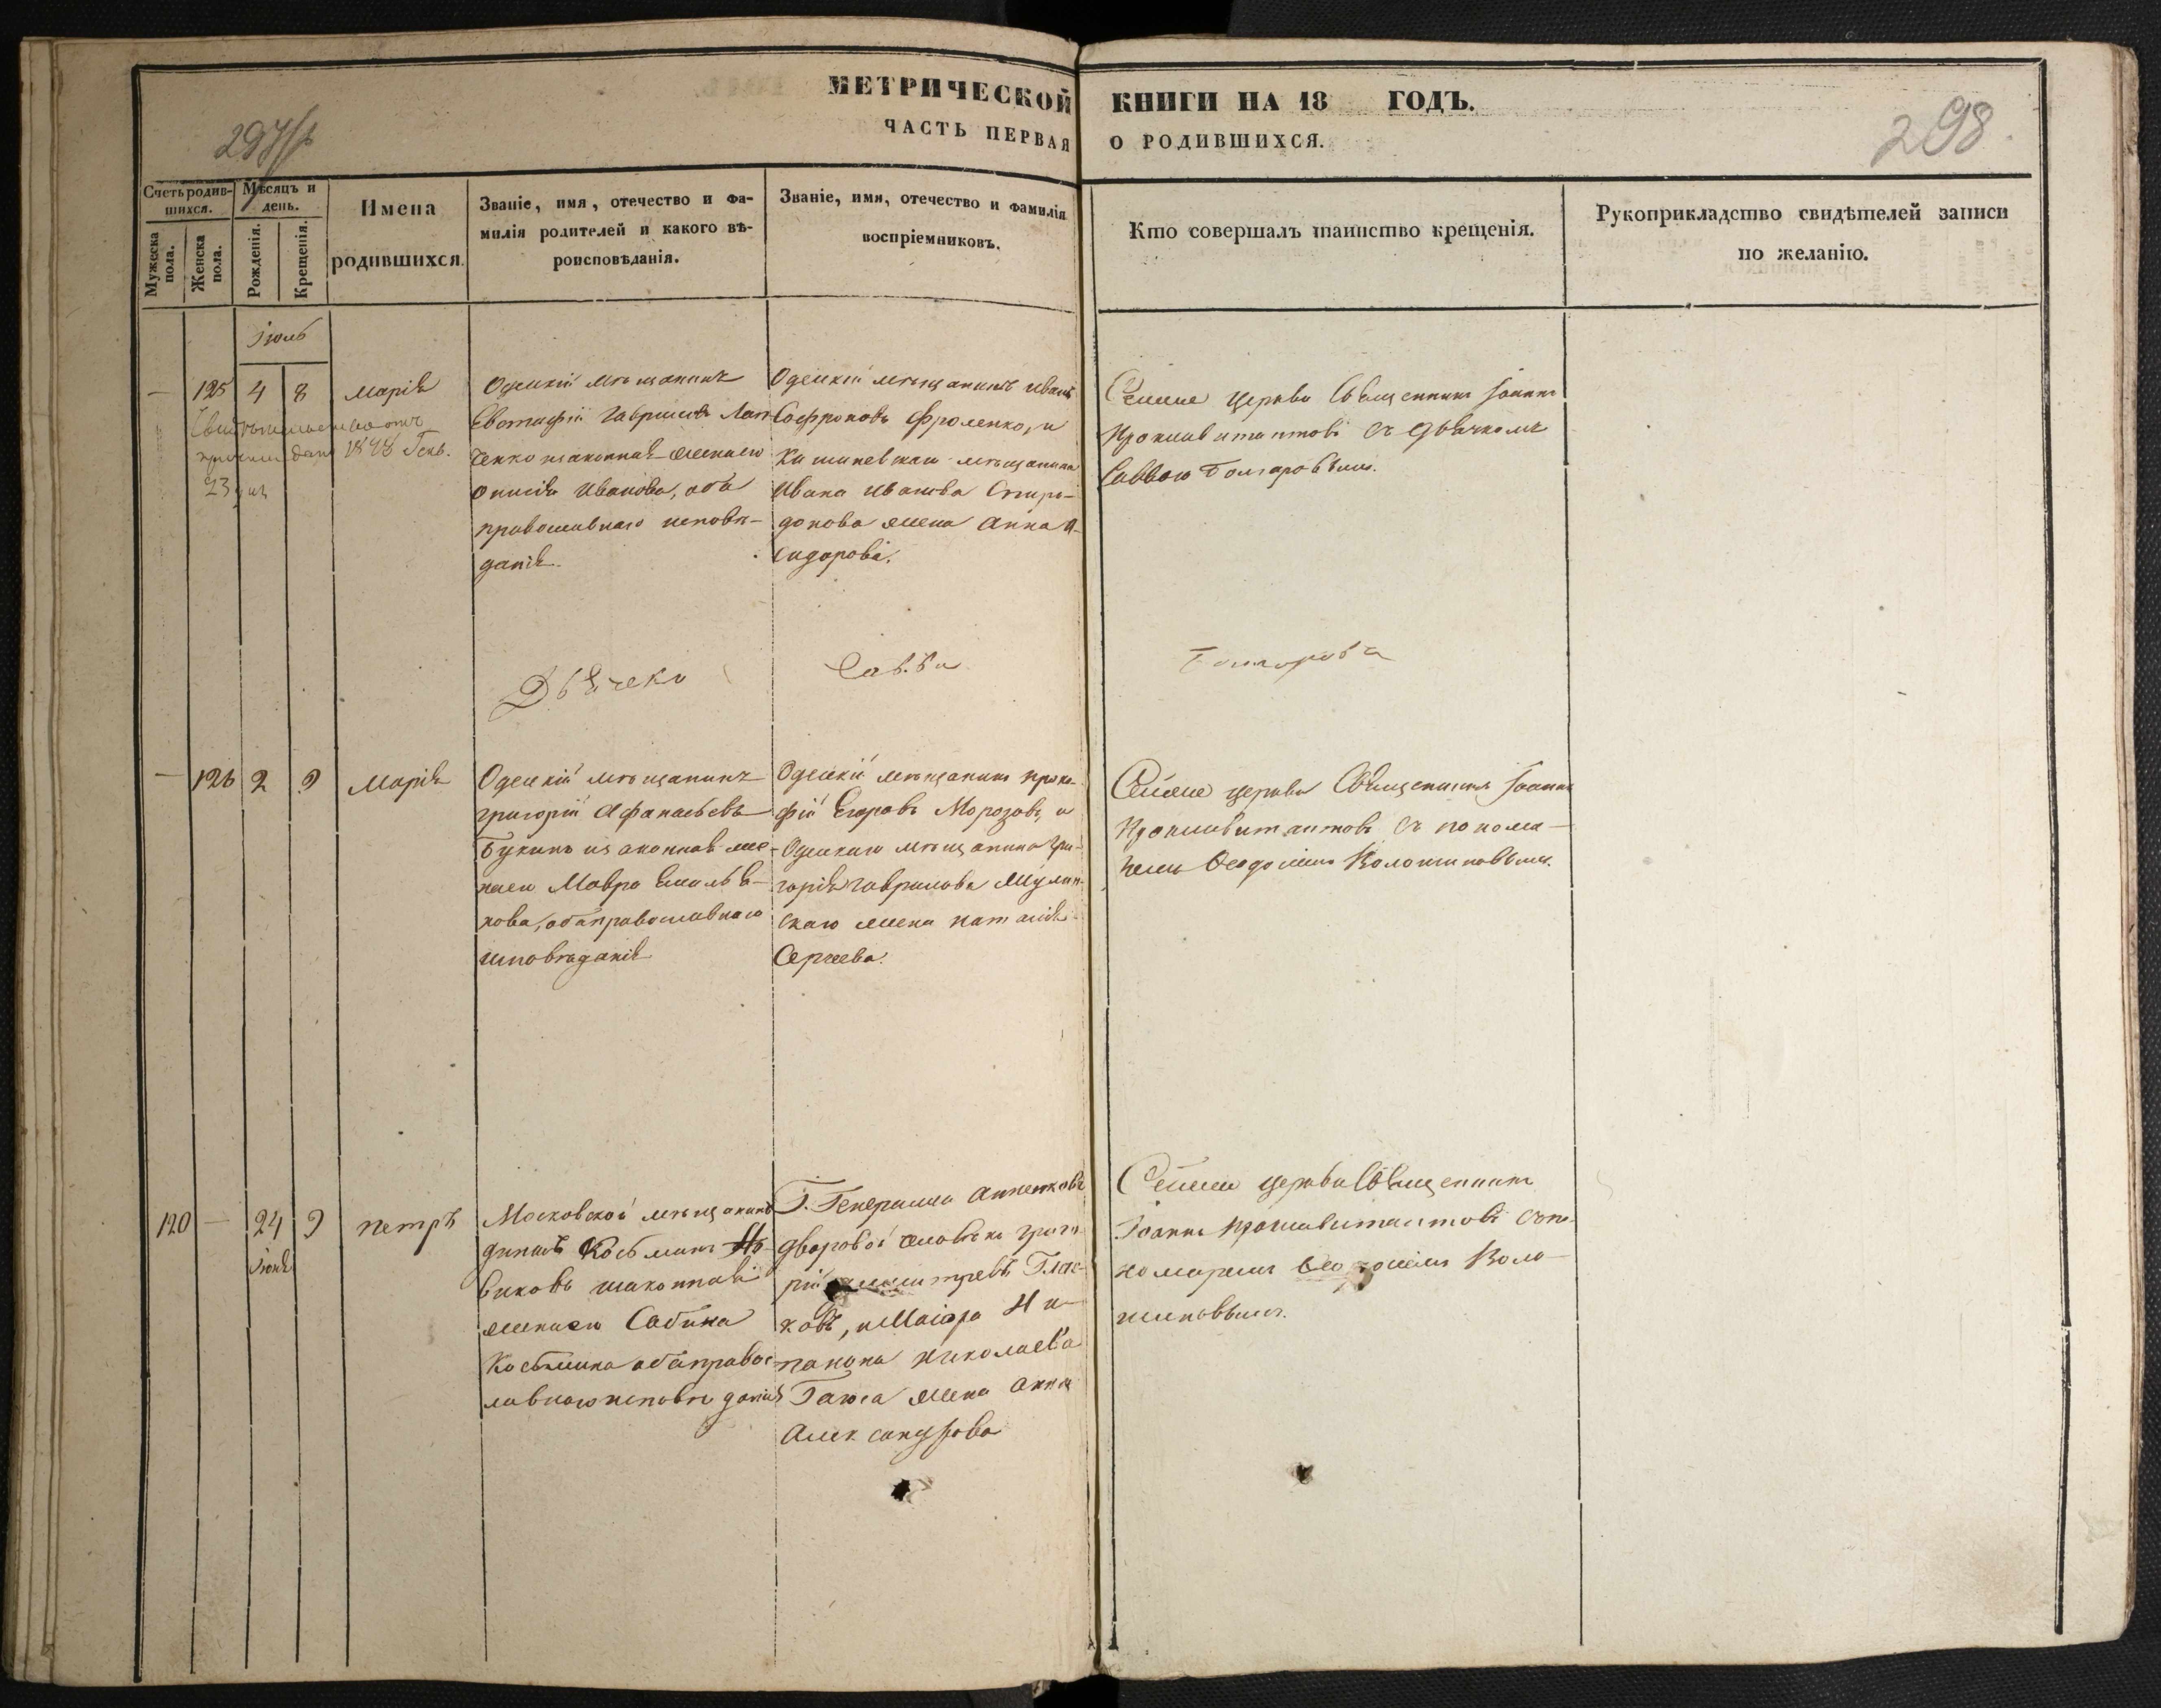 МЕТРИЧЕСКОЙ КНИГИ НА 18 ГОДЪ.
ЧАСТЬ ПЕРВАЯ О РОДИВШИХСЯ.
298
Счетъ родившихся.
Мужеска пола.
Женска пола.
Мѣсяцъ и день.
Рожденія.
Крещенія.
Имена родившихся.
Званіе, имя, отечество и фа-
милія родителей и какого вѣ-
роисповѣданія.
Званіе, имя, отечество и фамилія
воспріемниковъ.
Кто совершалъ таинство крещенія.
Рукоприкладство свидѣтелей записи
по желанію.
Іюль
125 4 8 Марія
1848 Генв.
23 дня
Одескій мѣщанинъ
Евстафій Гавриловъ Лап
ченко изаконная жена его
Ивановa, оба
православнаго исповѣ-
данія.
Одескій мѣщанинъ Иванъ
Софроновъ Фроленко, и
Кишиневскаго мѣщанина
Ивана Иванова Спири-
донова жена Анна И-
сидорова.
Сейже церкви Священникъ Іоаннъ
съ дьячкомъ
Саввою Болгаровымъ.
Дьячекъ Савва Болгаровъ
126 2 9 Марія
Одескій мѣщанинъ
Григорій Афанасьевъ
Букинъ изаконная же-
на его Мавра Емелья-
нова, оба православнаго
исповѣданія
Одескій мѣщанинъ Проко-
фій Егоровъ Морозовъ, и
Одескаго мѣщанина Гри-
горія Гаврилова
скаго жена Наталія
Сергеева.
Сейже церкви Священникъ Іоаннъ
съ понома-
ремъ Феодосіемъ Волошиновымъ.
120 24 9 Петръ
Іюня
Московской мѣщанинъ
Косьминъ Но-
виковъ изаконная
жена его Сабина
Косьмина оба правос-
лавнаго исповѣданія
Г. Генералши Анненковой
дворовой человѣкъ Григо-
рій Димитревъ Глас-
ковъ, и Маіора
Николаева
жена Анна
Александрова
Сейже церкви Священникъ
Іоаннъ съ по-
номаремъ Феодосіемъ Воло-
шиновымъ.